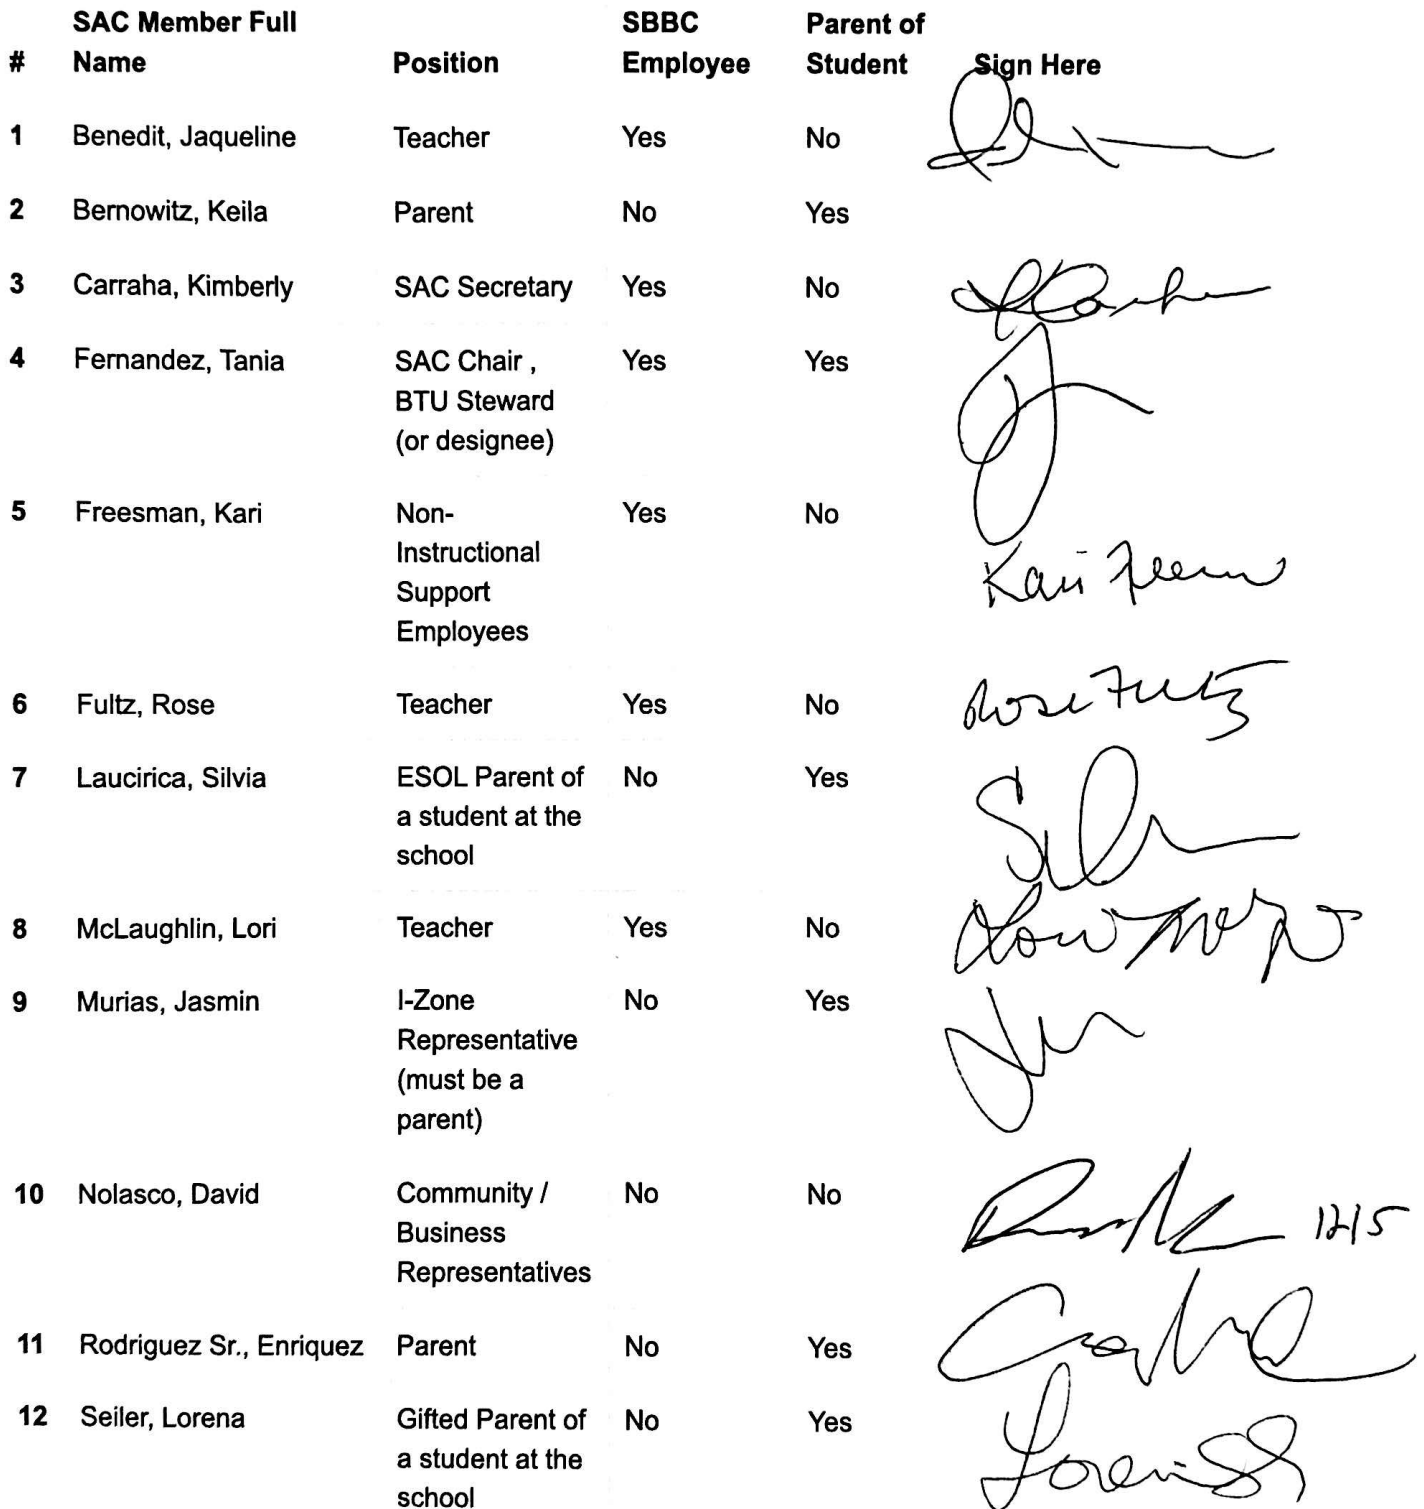 SAC Member Full SBBC Parent of
# Name Position Employee Student Sign Here
1 Benedit, Jaqueline Teacher Yes No
2 Bernowitz, Keila Parent No Yes
3 Carraha, Kimberly SAC Secretary Yes No
4 Fernandez, Tania SAC Chair , Yes Yes
BTU Steward
(or designee)
5 Freesman, Kari Non- Yes No
Instructional
Support
Employees
Kari
6 Fultz, Rose Teacher Yes No Rose Fultz
7 Laucirica, Silvia ESOL Parent of No Yes
a student at the
school
8 McLaughlin, Lori Teacher Yes No
9 Murias, Jasmin I-Zone No Yes
Representative
(must be a
parent)
10 Nolasco, David Community / No No
Business 12/5
Representatives
11 Rodriguez Sr., Enriquez Parent No Yes
12 Seiler, Lorena Gifted Parent of No Yes
a student at the
school